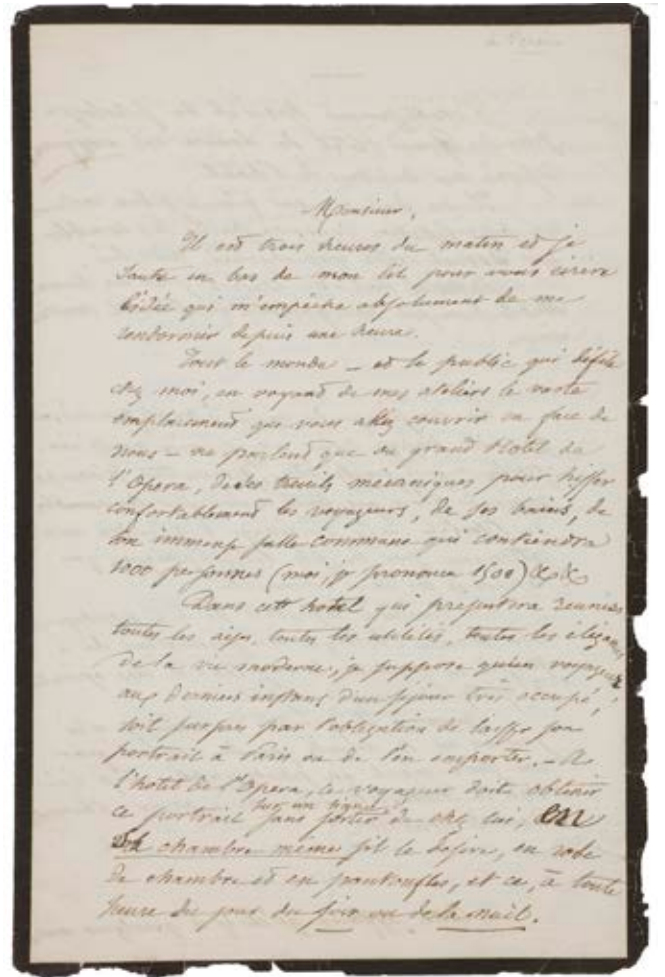 Monsieur,
Il est trois heures du matin et je
saute en bas de mon lit pour vous écrire
l'idée qui m'empêche absolument de me
rendormir depuis une heure.
Tout le monde – et le public qui défile
chez moi, en voyant de mes ateliers le vaste
emplacement que vous allez couvrir en face de
nous – ne parlent que du grand Hotel de
l'Opera, de ses treuils mécaniques pour hisser
confortablement les voyageurs, de ses bains, de
son immense salle commune qui contiendra
1000 personnes (moi, je prononce 1500) &c &c
Dans cet hotel qui présentera réunies
toutes les aises, toutes les utilités, toutes les élégances
de la vie moderne, je suppose qu'un voyageur
aux derniers instans d'un séjour très occupé,
soit surpris par l'obligation de laisser son
portrait à Paris ou de l'en emporter. – A
l'hotel de l'Opera, ce voyageur doit obtenir
sur un signe
ce portrait sans sortir de chez lui, en
sa chambre même s'il le désire, en robe
de chambre et en pantoufles, et ce, à toute
heure du jour du soir ou de la nuit.